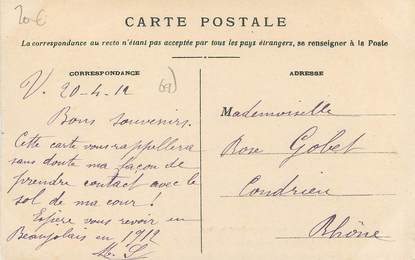 20€
CARTE POSTALE
La correspondance au recto n'étant pas acceptée par tous les pays étrangers, se renseigner à la Poste
CORRESPONDANCE
V. 20-4-12
(69)
Bons souvenirs.
Cette carte vous rappellera
sans doute ma façon de
prendre contact avec le
sol de ma cour !
Espère vous revoir en
Beaujolais en 1912
M. L
ADRESSE
Mademoiselle
Rose Gobet
Condrieu
Rhône